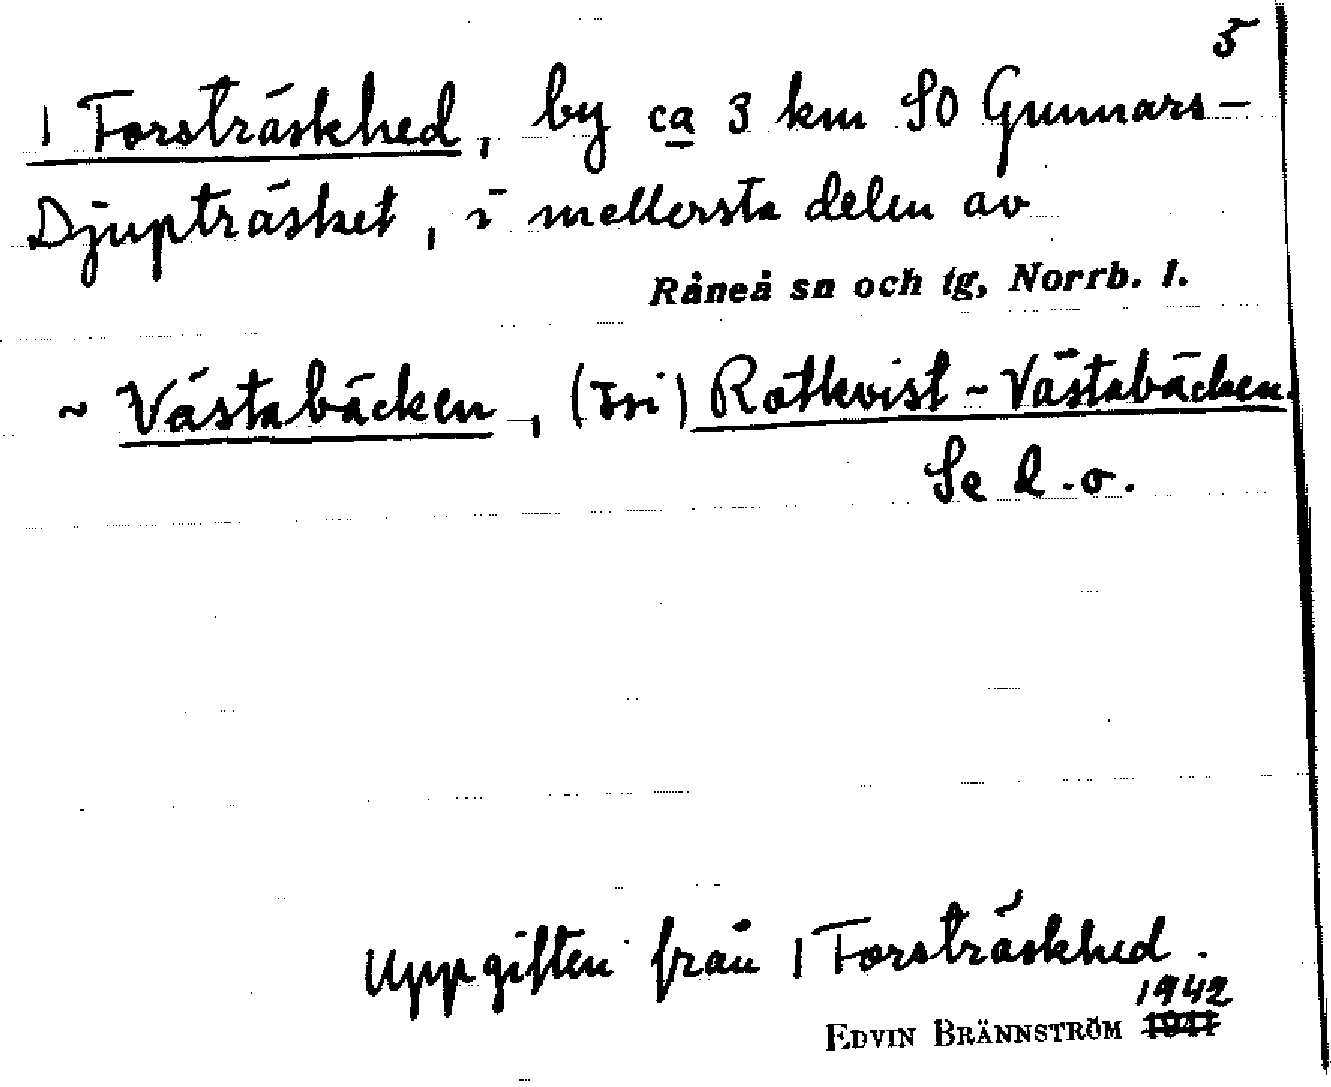 5
1 Forsträskhed, by ca 3 km SO Gunnars-
Djupträsket, i mellersta delen av
Råneå sn och tg, Norrb. l.
~ Västabäcken, (Tri) Rotkvist-Västabäcken.
Se d.o.
Uppgiften från 1 Forsträskhed.
1942
EDVIN BRÄNNSTRÖM 1941